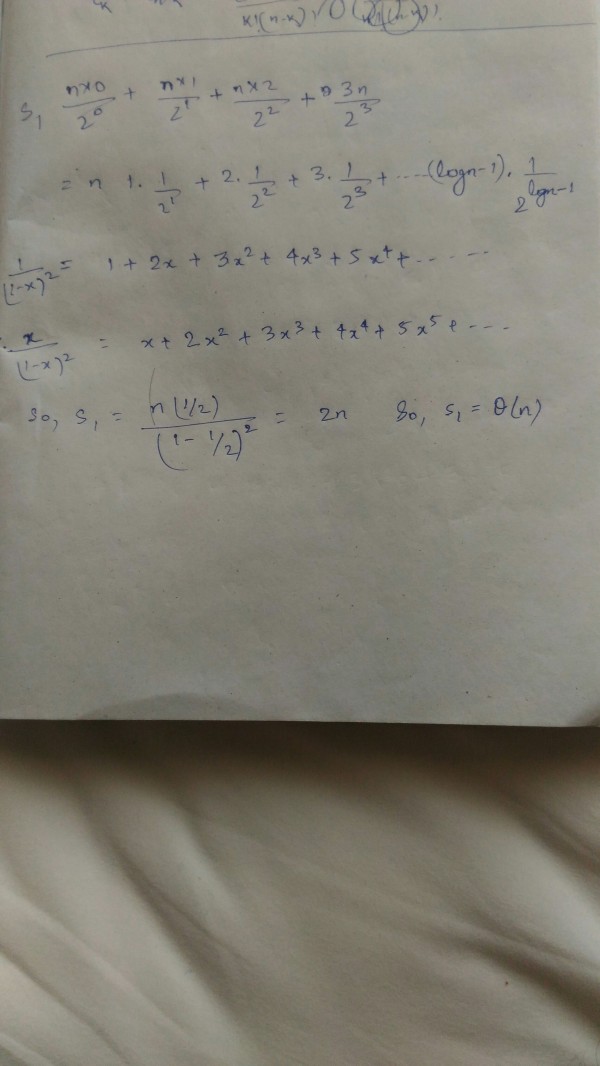 x!(n-x)!
S₁ n×0/2⁰ + n×1/2¹ + n×2/2² + 3n/2³
= n 1. 1/2¹ + 2. 1/2² + 3. 1/2³ + .... (logn-1). 1/2^(logn-1)
1/(1-x)² = 1 + 2x + 3x² + 4x³ + 5x⁴ + ......
x/(1-x)² = x + 2x² + 3x³ + 4x⁴ + 5x⁵ + ....
So, S₁ = n(1/2)/(1-1/2)² = 2n So, S₁ = θ(n)